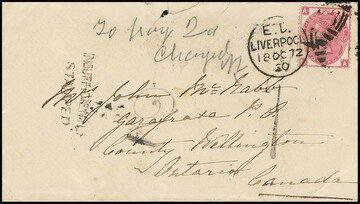 To pay 2d
Charged
E.C.
LIVERPOOL
18 OC 72
20
A
A
INSUFFICIENTLY
STAMPED
2
1
John McNabb
Garafraxa P.O.
County Wellington
Ontario
Canada